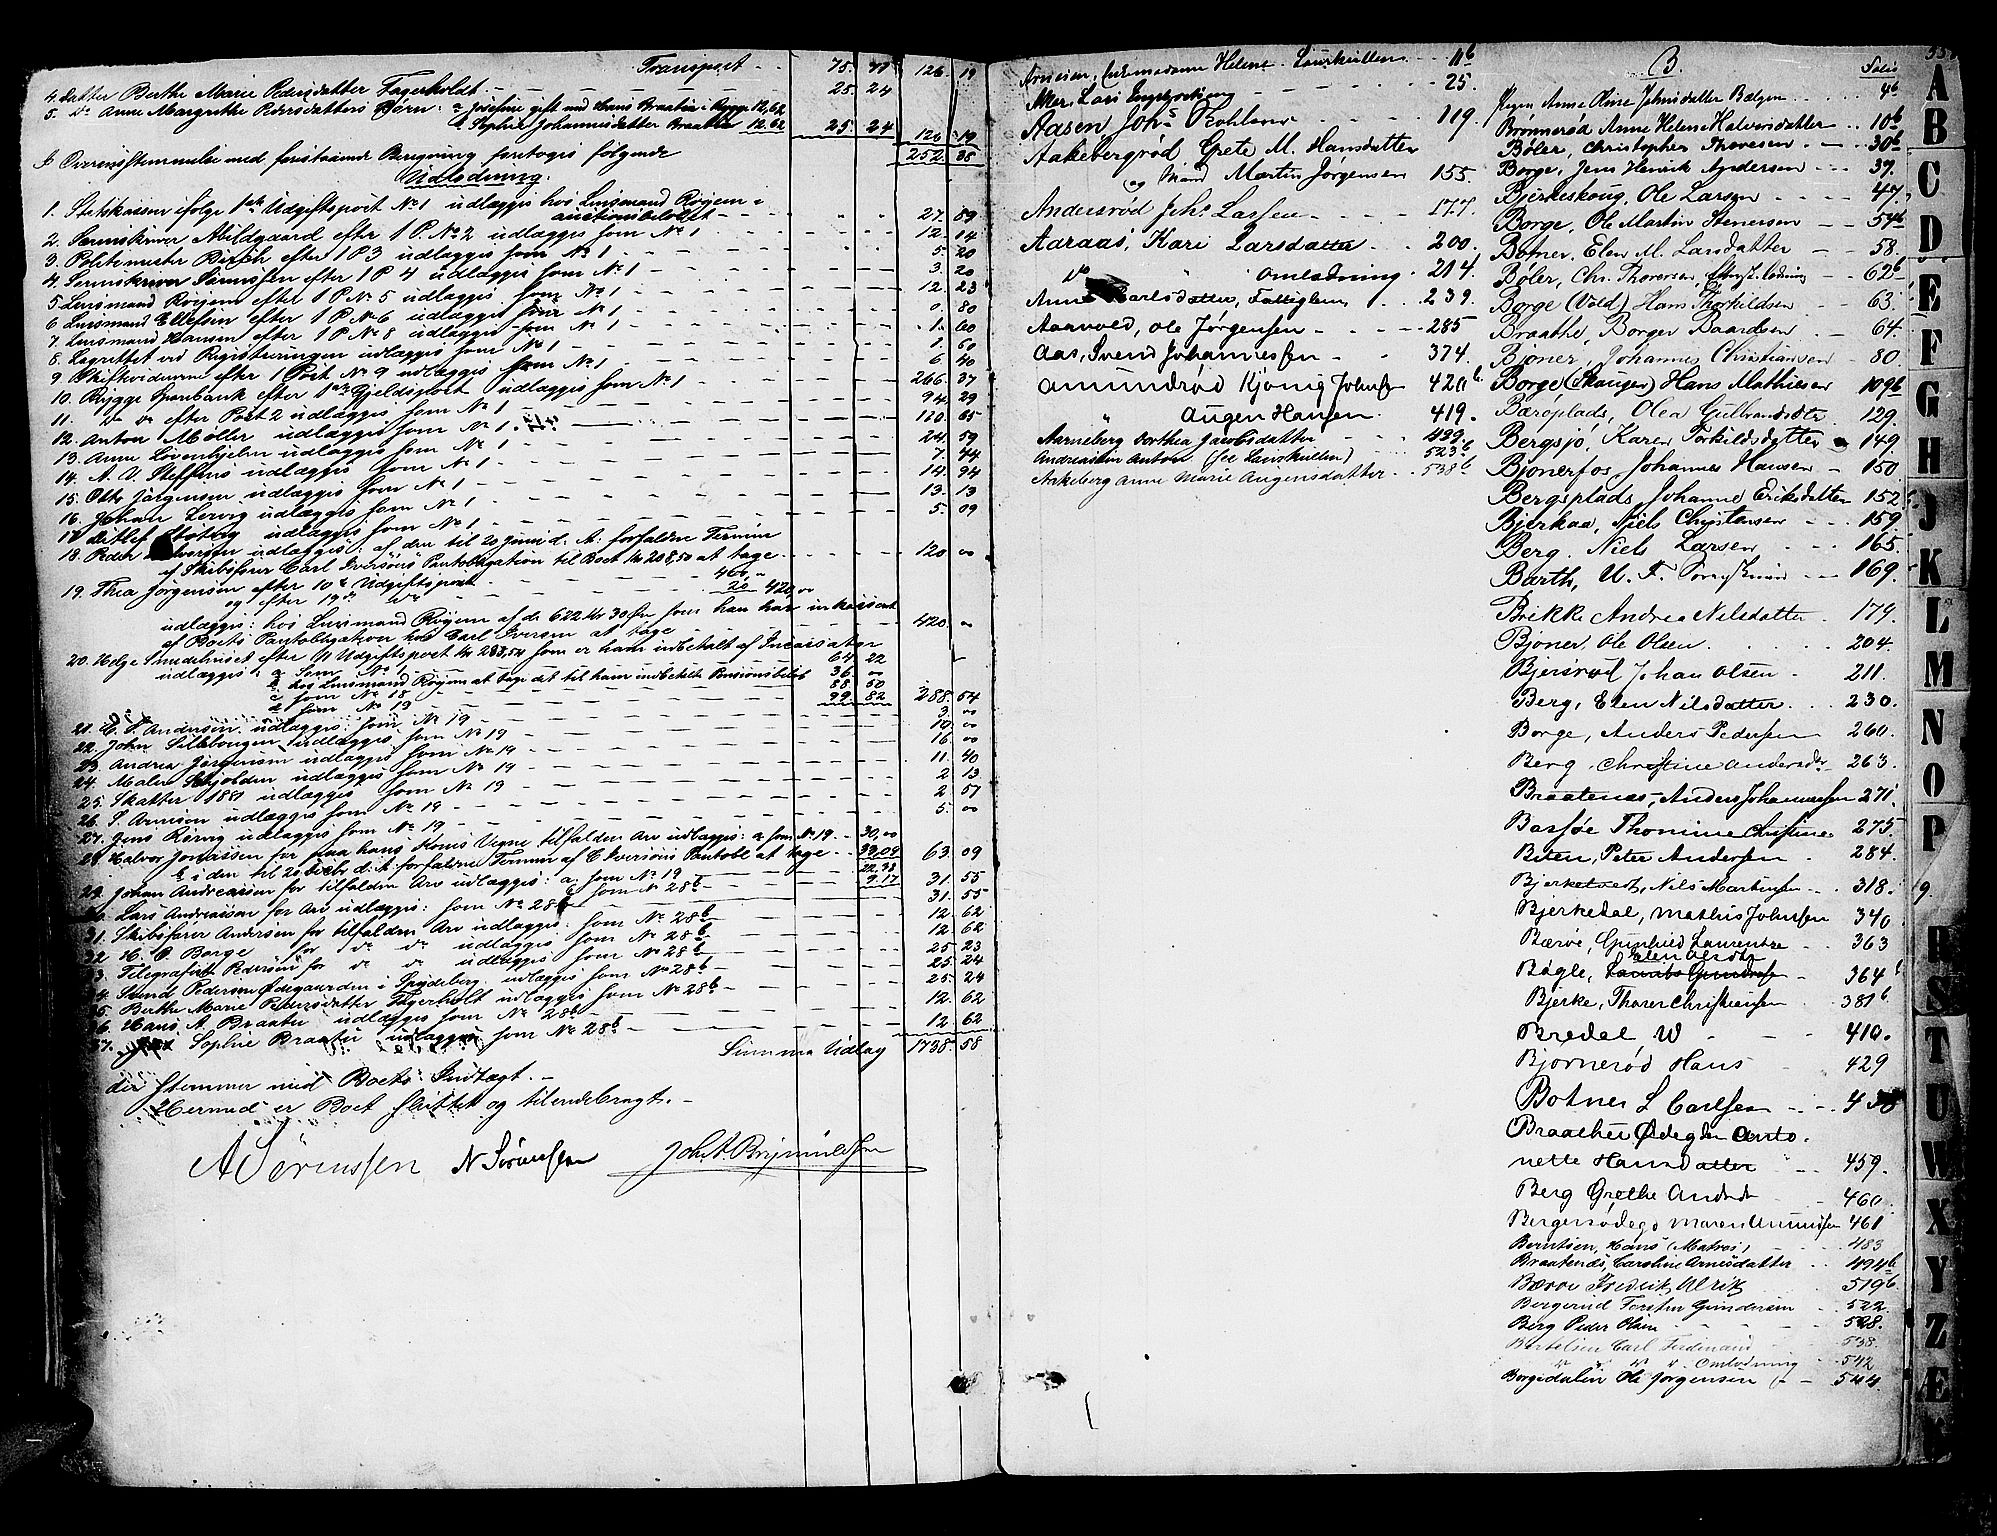 Transport - - 75. 71 126. 19
4. Datter Berthe Marie Pedersdatter Fagerholt - - - 25. 24
5. Do Anne Margrethe Pedersdatters Børn: a Josefine gift med Hans Braaten i Rygge 12,62
b Sophie Johannesdatter Braaten 12.62 25. 24 126. 19
252. 38
I Overensstemmelse med foranstaaende Beregning foretoges følgende
Udlodning.
1. Statskassen ifølge 1ste Udgiftspost No 1 udlægges hos Lensmand Røyem i
auctionsbeløbet - - 27. 89
2. Sorenskriver Abildgaard efter 1 P. No 2 udlægges som No 1 - - 12. 14
3. Politimester Birch efter 1 P 3 udlægges som No 1 - - 5. 20
4. Sorenskriver Sørenssen efter 1 P 4 udlægges som No 1 - - 3. 20
5. Lensmand Røyem efter 1 P No 5 udlægges som No 1 - - 12. 23
6. Lensmand Ellefsen efter 1 P No 6 udlægges som No 1 - - 0. 80
7. Lensmand Hansen efter 1 P No 8 udlægges som No 1 - - 1. 60
8. Lagrettet ved Registreringen udlægges som No 1 - - 1. 60
9. Skiftevidnerne efter 1 Post No 9 udlægges som No 1 - - 6. 40
10. Rygge Sparebank efter 1ste Gjeldspost udlægges som No 1 - - 266. 37
11. Do do efter Post 2 udlægges som No 1 - - 94. 29
12. Anton Møller udlægges som No 1. - - 120. 65
13. Anne Lovenhjelm udlægges som No 1 - - 24. 59
14. A. V. Steffens udlægges som No 1 - - 7. 44
15. Otto Jørgensen udlægges som No 1 - - 14. 94
16. Johan Lervig udlægges som No 1 - - 13. 13
17. Ditlef udlægges som No 1 - - 5. 09
18. Peder Iversen udlægges: af den til 20 Juni d. A. forfaldne Termin
af Skibsfører Carl Iversens Pantobligation til Boet Kr 208,50 at tage - - 120 00
19. Thea Jørgensen efter 10de Udgiftspost - - 400, "
og efter 19de do - - 20 420,00
udlægges: hos Lensmand Røyem af de 622 Kr 30 Øre som han har inkasseret
af Boets Pantobligation hos Carl Iversen at tage - - 420. 00
20. Helge Smedehuset efter 11 Udgiftspost Kr 288,54 som er ham udbetalt af Incassator
udlægges: a som No 1 64 22
b hos Lensmand Røyem at tage det til ham indbetalte Pensionsbeløb 36. 00
c som No 18 88 50
d som No 19 99. 82 288. 54
21. C. S. Andersen udlægges: som No 19 - - 3. 00
22. Johan Sillebongen udlægges som No 19 - - 10 00
23. Andrea Jørgensen udlægges som No 19 - - 16. 00
24. Malene Skjolden udlægges som No 19 - - 11. 40
25. Skatter 1881 udlægges som No 19 - - 2 13
26. S. Arnesen udlægges som No 19 - - 2 57
27. Jens Rørvig udlægges som No 19 - - 5. 00
28. Halvor Jonassen for paa hans Kones Vegne tilfalden Arv udlægges: a som No 19 - 30,00
b i den til 20 Decbr d: A: forfaldne Termin af C Iversens Pantobl at tage - 33,09 63 09
29. Johan Andreasen for tilfalden Arv udlægges: a. som No 19 - 22,38
b som No 28b - 9.17 31. 55
30. Lars Andreassen for Arv udlægges: som No 28b - - 31. 55
31. Skibsfører Andersen for tilfalden Arv udlægges: som No 28b - - 12 62
32. H. P. Borge for do do udlægges som No 28b - - 12. 62
33. Telegrafist Pedersen for do do udlægges som No 28b - - 25 23
34. Svend Pedersen Ødegaarden i Spydeberg udlægges som No 28b - - 25. 24
35. Berthe Marie Pedersdatter Fagerholt udlægges som No 28b - - 25 24
36. Hans A. Braaten udlægges som No 28b - - 12. 62
37. Sophie Braaten udlægges som No 28b - - 12 62
Summa Udlæg 1738. 58
der stemmer med Boets Indtægt. -
Hermed er Boet sluttet og tilendebragt. -
A Sørenssen N Sørenssen Joh. A. Brynmildsen
Arnesen, Enkemadame Helene Laurkullen - - 11b
Aker, Lars - - 25.
Aasen Johs Rohlsen - - 119.
Aakebergrød, Grete M. Hansdatter
og Mand Martin Jørgensen 155.
Andersrød Johs Larsen - - - 177.
Aaraas, Kari Larsdatter - - 200.
Do " Omlodning. 214.
Anne Karlsdatter, Fattiglem - - 239.
Aanvold, Ole Jørgensen - - - 285
Aas, Svend Johannessen - - 374.
Amundrød Kjønig Johnsen 420b.
" Augen Hansen. 419.
Aarneberg Dorthea Jacobsdatter - - 499.
Andreassen Anton (see Laurkullen) - - 523b
Aakeberg Anne Marie Augensdatter - - 538b
B. Folio
Anne Oline Johnsdatter Bølgen - - 4b
Brønnerød Anne Helene Halvorsdatter - - 10b
Bøler, Christopher Thoresen - - 30b
Borge, Jens Henrik Andersen - - - 39.
Bjerkeskoug, Ole Larsen - - - - 47.
Borge, Ole Martin Stenersen - - 54b
Botner, Elen M. Larsdatter - - 58.
Bøler, Chr. Thoresen, Eftersk.lodning - - 62b
Borge (Vold) Hans Thorkildsen - - 63.
Braathe, Borger Baardsen - - 64.
Bjoner, Johannes Christiansen - 80
Borge (Skauger) Hans Mathisen 109b
Bærøplads, Olea Gulbrandsdtr 129.
Bergsjø, Karen Torkildsdatter 149.
Bjonerfos Johannes Hansen - 150
Bergsplads Johanne Eriksdatter 152
Bjerkaa, Niels Christensen - - - 159.
Berg. Niels Larsen - - - 165.
Barth, U. F. Sorenskriver - - - 169.
Brikke Andrea Nilsdatter. 179.
Bjoner, Ole Olsen - - - 204.
Bjersrød Johan Olsen - 211.
Berg, Elen Nilsdatter - - 230.
Borge, Anders Pedersen 260.
Berg, Christine Andersdr - 263.
Braatenæs, Anders Johannesen 271.
Basføe Thomine Christine 275.
Biten, Peter Andersen - 284.
Bjerketvedt, Nils Martinsen - - 318.
Bjerkedal, Mathis Johnsen 340
Bærøe, Gunhild Laurentze - - 363
Elen Olsdtr
Bøgle, Laurits Gundersen - 364b
Bjerke, Thorer Christiansen - 381b
Bredal W - - 410.
Bjornerød Hans 429
Botner L Carlsen - - - 438
Braathen Ødegden Anto.
nette Hansdatter - - 459.
Berg Grethe Andsdr - 460.
Bergersødegd Maren Amundsen 461
Berntsen, Hans (Matros) - - 483
Braatenæs, Caroline Arnesdatter - - 494b
Bærøe Fredrik Ulrik - 519b
Bergerud Torsten Gundersen - - 522.
Berg Peder Olsen - - - - 528.
Bertelsen Carl Ferdinand - 538.
" " " - Omlodning - 542
Borgedalen Ole Jørgensen - - 544.
A
B
C
D
E
F
G
H
J
K
L
M
N
O
P
R
S
T
U
W
X
Y
Z
Æ